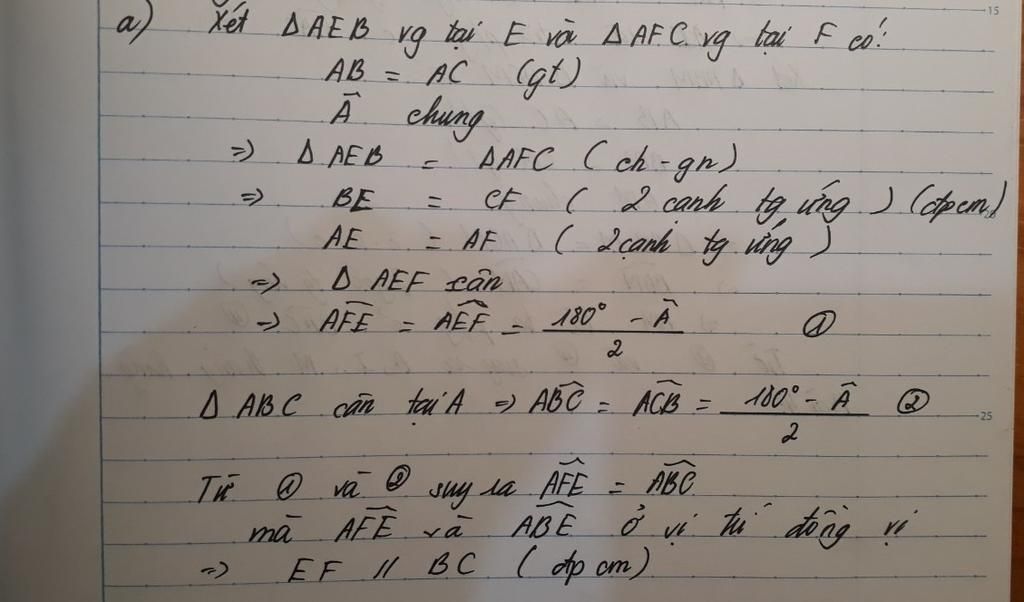 a) Xét ΔAEB vg tại E và ΔAFC vg tại F có:
AB = AC (gt)
Â chung
=> ΔAEB = ΔAFC (ch - gn)
=> BE = CF (2 cạnh tg ứng) (đpcm)
AE = AF (2 cạnh tg ứng)
=> ΔAEF cân
=> AFE^ = AEF^ = (180° - Â)/2 ①
ΔABC cân tại A => ABC^ = ACB^ = (180° - Â)/2 ②
Từ ① và ② suy ra AFE^ = ABC^
mà AFE^ và ABE^ ở vị trí đồng vị
=> EF // BC (đpcm)
15
25